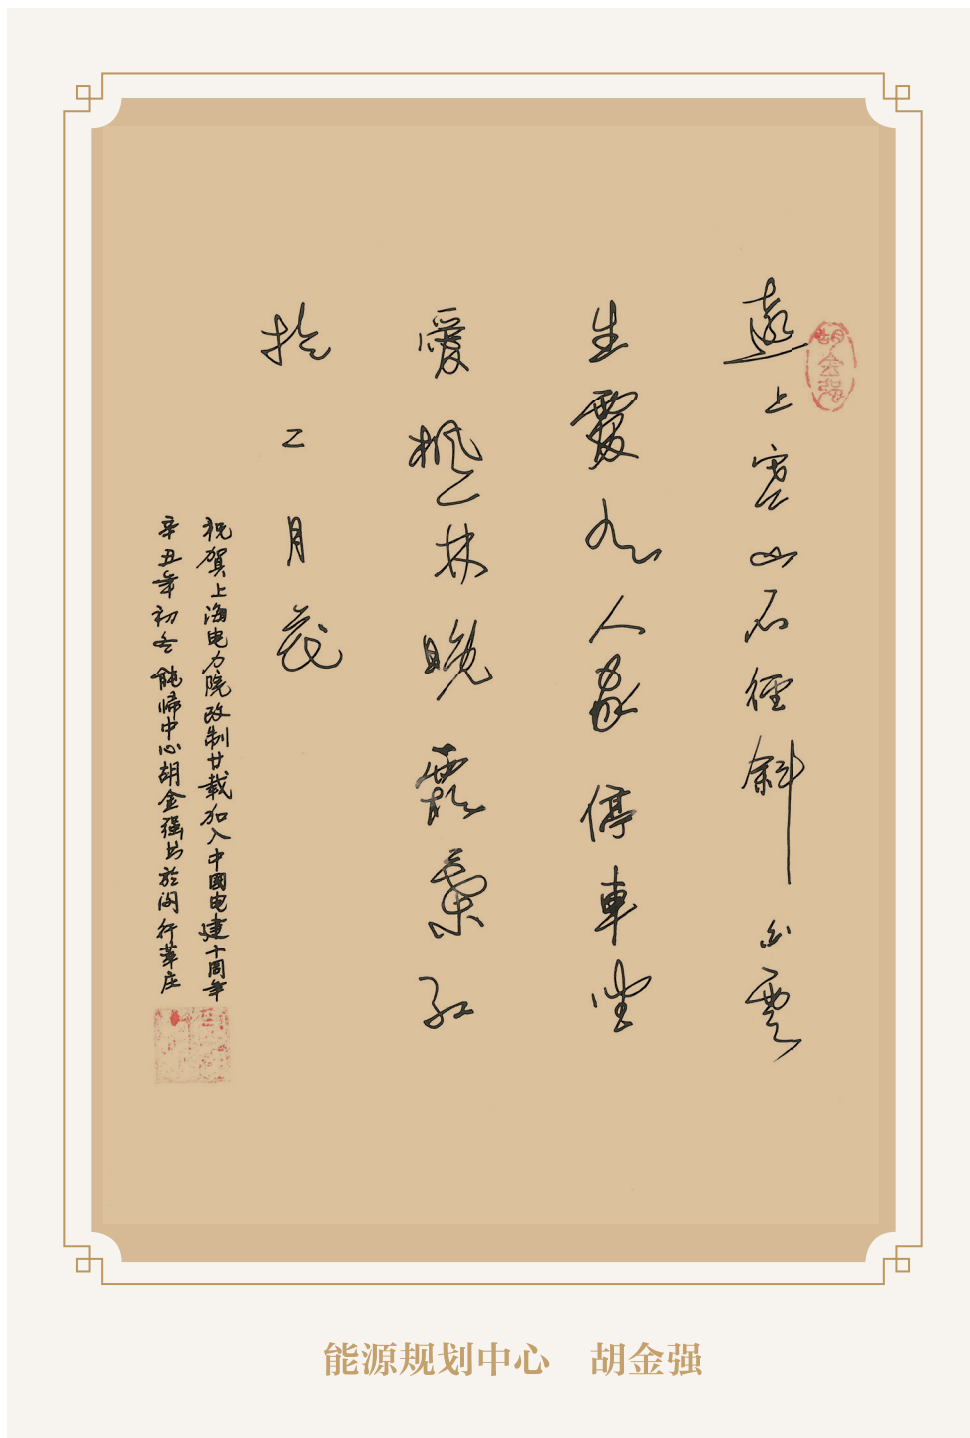 胡金强
遠上寒山石徑斜白雲
生處有人家停車坐
愛楓林晚霜葉紅
於二月花
祝賀上海电力院改制廿載加入中國电建十周年
辛丑年初冬能源中心胡金强书於闵行華庄
能源规划中心 胡金强